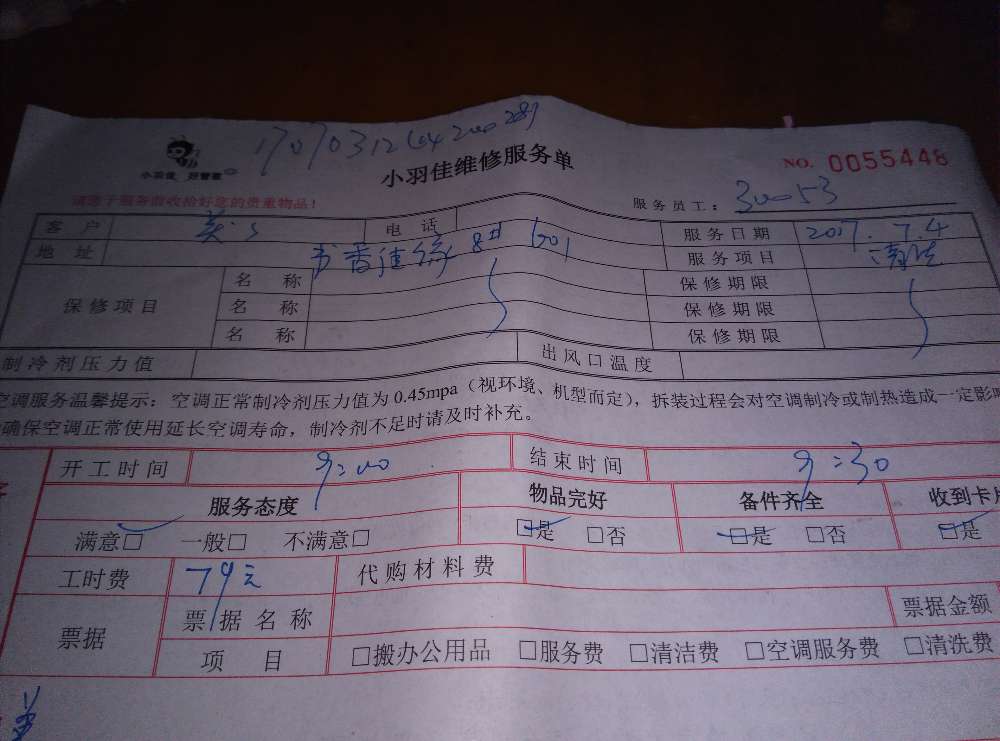 小羽佳 好管家
小羽佳维修服务单
NO. 0055448
请您于服务前收拾好您的贵重物品！
服务员工：
客户 电话 服务日期 2017.7.4
地址 书香佳缘 服务项目 清洗
保修项目 名称 保修期限
名称 保修期限
名称 保修期限
制冷剂压力值 出风口温度
空调服务温馨提示：空调正常制冷剂压力值为0.45mpa（视环境、机型而定），拆装过程会对空调制冷或制热造成一定影响
确保空调正常使用延长空调寿命，制冷剂不足时请及时补充。
开工时间 9:00 结束时间 9:30
服务态度 物品完好 备件齐全 收到卡片
满意□ 一般□ 不满意□ □是 □否 □是 □否 □是
工时费 79元 代购材料费
票据 票据名称 票据金额
项目 □搬办公用品 □服务费 □清洁费 □空调服务费 □清洗费